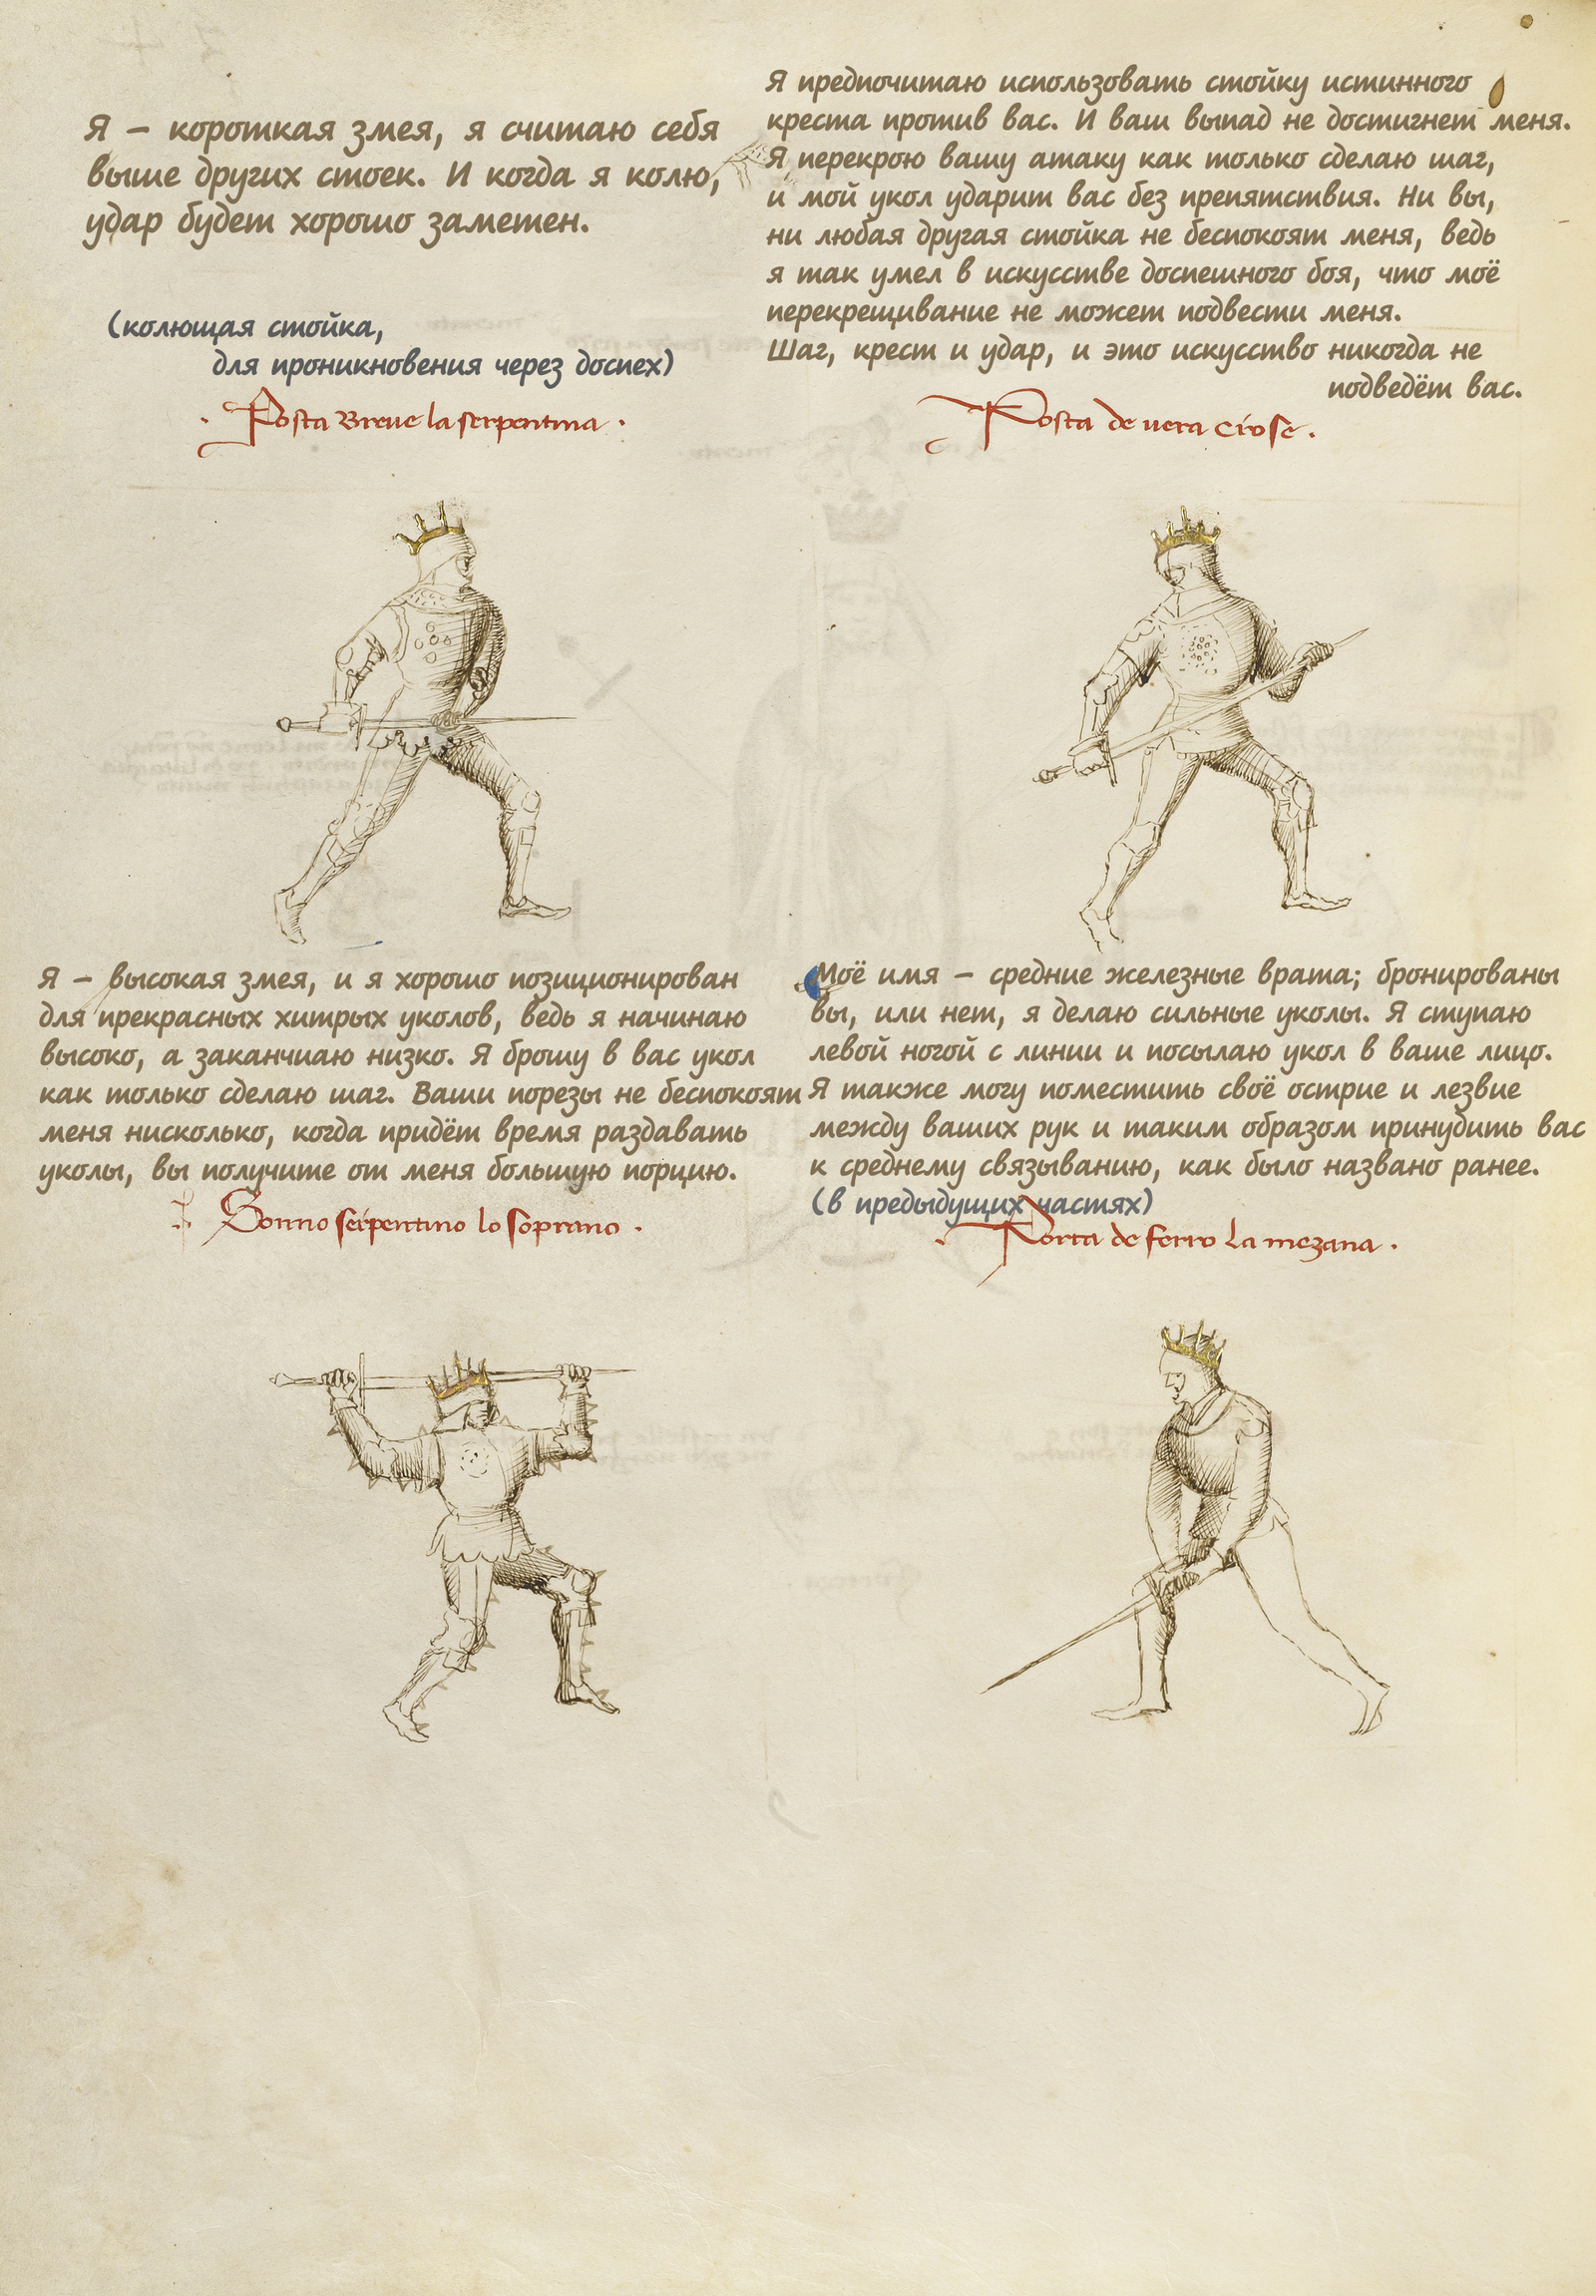 Я – короткая змея, я считаю себя
выше других стоек. И когда я колю,
удар будет хорошо заметен.
(колющая стойка,
для проникновения через доспех)
Posta Breue la serpentina
Я предпочитаю использовать стойку истинного
креста против вас. И ваш выпад не достигнет меня.
Я перекрою вашу атаку как только сделаю шаг,
и мой укол ударит вас без препятствия. Ни вы,
ни любая другая стойка не беспокоят меня, ведь
я так умел в искусстве доспешного боя, что моё
перекрещивание не может подвести меня.
Шаг, крест и удар, и это искусство никогда не
подведёт вас.
Posta de uera crose.
Я – высокая змея, и я хорошо позиционирован
для прекрасных хитрых уколов, ведь я начинаю
высоко, а заканчиаю низко. Я брошу в вас укол
как только сделаю шаг. Ваши порезы не беспокоят
меня нисколько, когда придёт время раздавать
уколы, вы получите от меня большую порцию.
serpentino lo soprano.
Моё имя – средние железные врата; бронированы
вы, или нет, я делаю сильные уколы. Я ступаю
левой ногой с линии и посылаю укол в ваше лицо.
Я также могу поместить своё острие и лезвие
между ваших рук и таким образом принудить вас
к среднему связыванию, как было названо ранее.
(в предыдущих частях)
Porta de ferro la mezana.